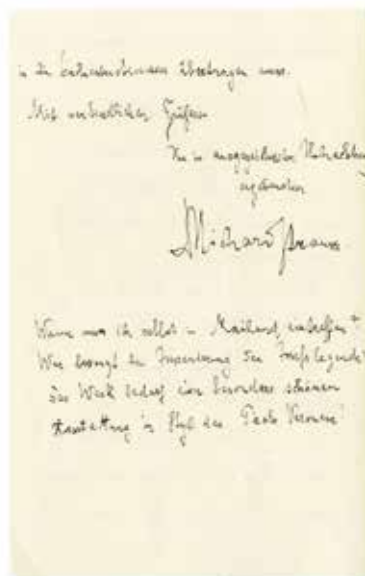 in die übertragen muss.
Mit verbindlichen Grüßen
Ihr in ausgezeichneter Hochachtung
ergebenster
Richard Strauss
Wann muss ich selbst in Mailand eintreffen?
Wer besorgt die Inszenierung der Josefslegende?
Das Werk bedarf einer besonders schönen
Ausstattung im Styl des Paolo Veronese!